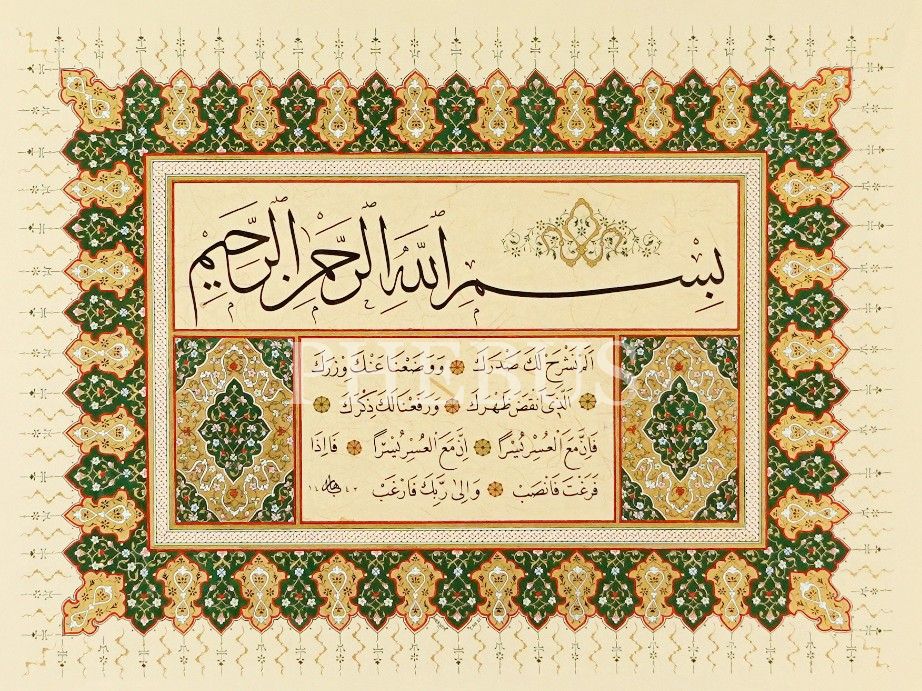 بِسْمِ اللهِ الرَّحْمٰنِ الرَّحِيمِ
اَلَمْ نَشْرَحْ لَكَ صَدْرَكَ وَوَضَعْنَا عَنْكَ وِزْرَكَ
اَلَّذِى اَنْقَضَ ظَهْرَكَ وَرَفَعْنَا لَكَ ذِكْرَكَ
فَاِنَّ مَعَ الْعُسْرِ يُسْرًا اِنَّ مَعَ الْعُسْرِ يُسْرًا فَاِذَا
فَرَغْتَ فَانْصَبْ وَاِلٰى رَبِّكَ فَارْغَبْ
PHEBUS